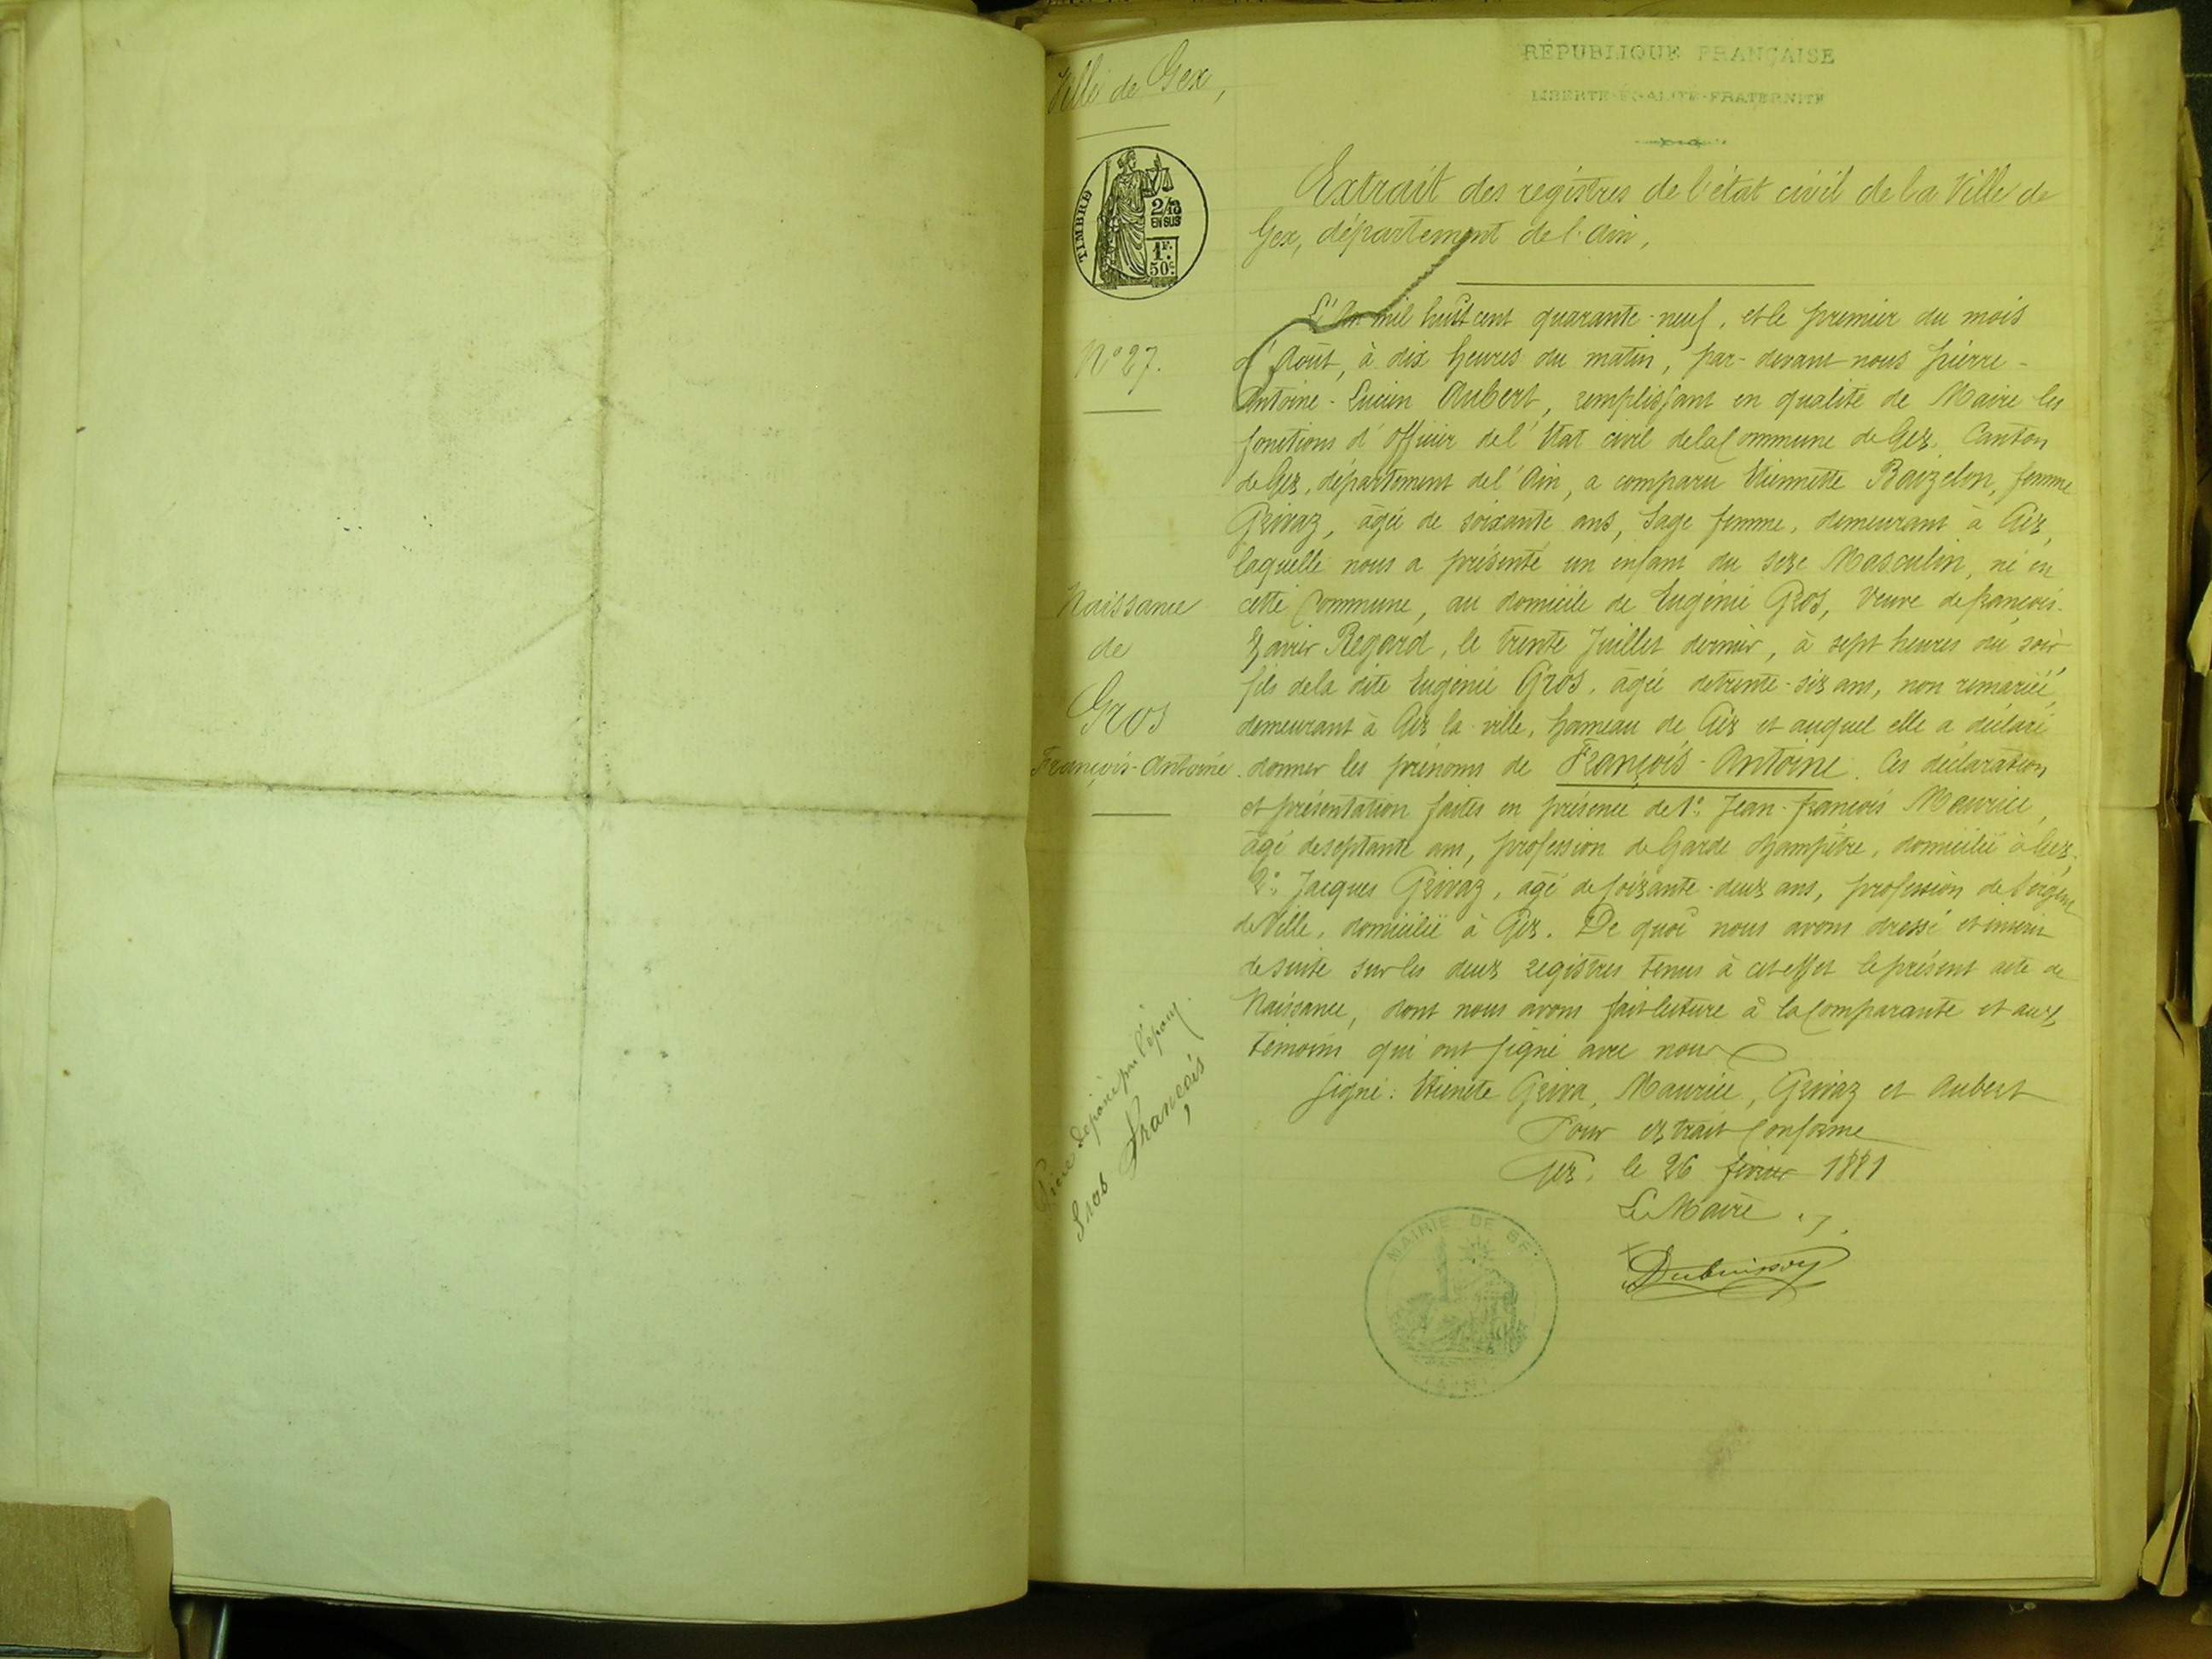 Ville de Gex,
TIMBRE
2/10
EN SUS
1F.
50c
N° 27.
Naissance
de
Gros
François-Antoine
Pièce déposée par l'époux
Gros François
RÉPUBLIQUE FRANÇAISE
LIBERTÉ-ÉGALITÉ-FRATERNITÉ
Extrait des registres de l'état civil de la Ville de
Gex, département de l'Ain,
L'An mil huit cent quarante-neuf, et le premier du mois
d'Août, à dix heures du matin, par-devant nous Pierre-
Antoine-Lucien Aubert, remplissant en qualité de Maire les
fonctions d'Officier de l'Etat civil de la Commune de Gex, Canton
de Gex, département de l'Ain, a comparu Etiennette femme
Grivaz, âgée de soixante ans, Sage femme, demeurant à Gex,
laquelle nous a présenté un enfant du sexe Masculin, né en
cette Commune, au domicile de Eugénie Gros, Veuve de françois-
Xavier Regard, le trente Juillet dernier, à sept heures du soir
fils de la dite Eugénie Gros, âgée de trente-six ans, non remariée,
demeurant à Gex la ville, hameau de Gex et auquel elle a déclaré
donner les prénoms de François-Antoine. Ces déclaration
et présentation faites en présence de 1° Jean-françois Maurice,
âgé de septante ans, profession de Garde champêtre, domicilié à Gex,
2° Jacques Grivaz, âgé de soixante-deux ans, profession de Sergent
de Ville, domicilié à Gex. De quoi nous avons dressé et inscrit
de suite sur les deux registres tenus à cet effet le présent acte de
Naissance, dont nous avons fait lecture à la Comparante et aux
témoins qui ont signé avec nous
Signé : Etienete Griva, Maurice, Grivaz et Aubert
Pour extrait Conforme
Gex, le 26 février 1881
Le Maire
Dubuisson
MAIRIE DE